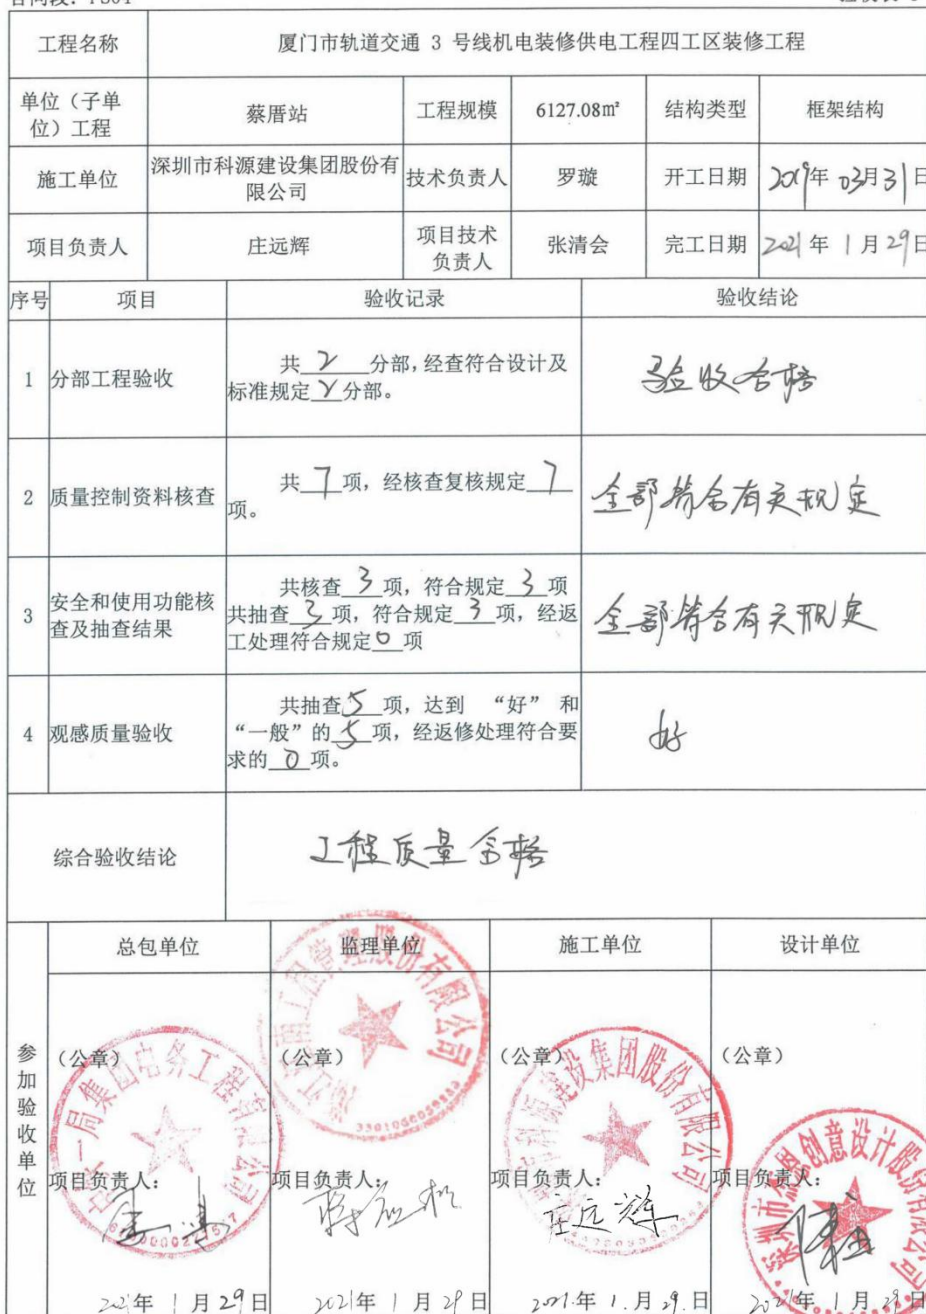 工程名称 厦门市轨道交通 3 号线机电装修供电工程四工区装修工程
单位（子单
位）工程 蔡厝站 工程规模 6127.08m² 结构类型 框架结构
施工单位 深圳市科源建设集团股份有
限公司 技术负责人 罗璇 开工日期 2019年 03月31日
项目负责人 庄远辉 项目技术
负责人 张清会 完工日期 2021年 1月29日
序号 项目 验收记录 验收结论
1 分部工程验收 共 2 分部，经查符合设计及
标准规定 2 分部。 验收合格
2 质量控制资料核查 共 7 项，经核查复核规定 7
项。 全部符合有关规定
3 安全和使用功能核
查及抽查结果 共核查 3 项，符合规定 3 项
共抽查 3 项，符合规定 3 项，经返
工处理符合规定 0 项 全部符合有关规定
4 观感质量验收 共抽查 5 项，达到 “好” 和
“一般”的 5 项，经返修处理符合要
求的 0 项。 好
综合验收结论 工程质量合格
参加验收单位
总包单位 监理单位 施工单位 设计单位
（公章） （公章） （公章） （公章）
项目负责人： 项目负责人： 项目负责人： 项目负责人：
庄远辉
2021年 1月29日 2021年 1月29日 2021年 1月29日 2021年 1月29日